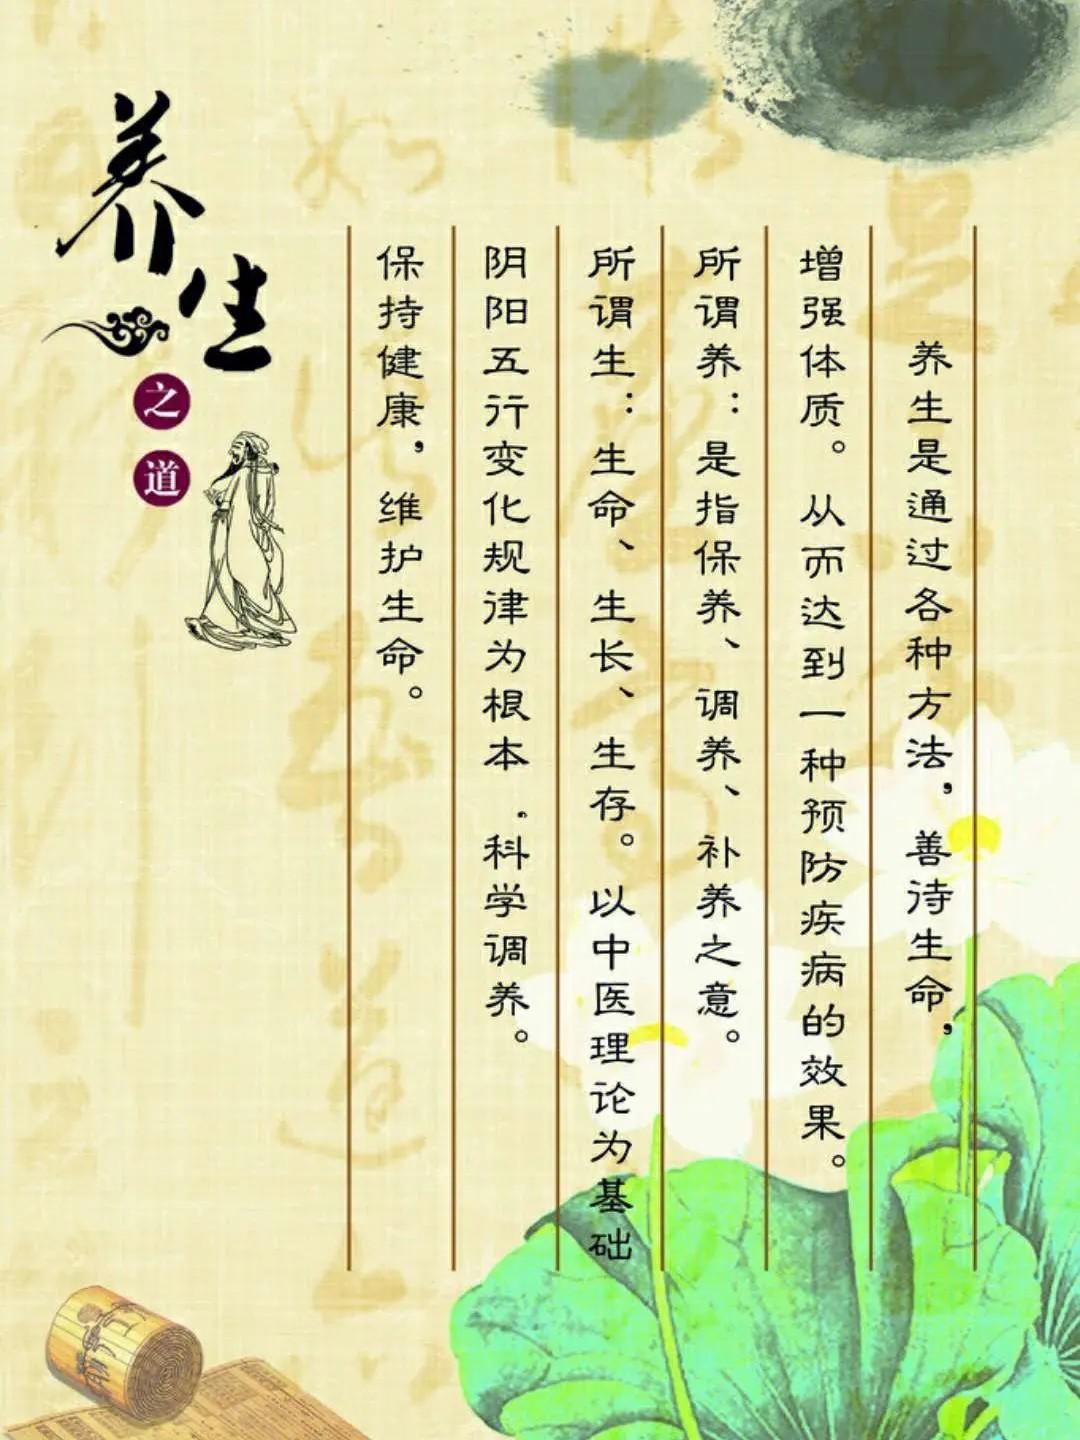 养生
之道
养生是通过各种方法，善待生命，
增强体质。从而达到一种预防疾病的效果。
所谓养：是指保养、调养、补养之意。
所谓生：生命、生长、生存。以中医理论为基础
阴阳五行变化规律为根本.科学调养。
保持健康，维护生命。